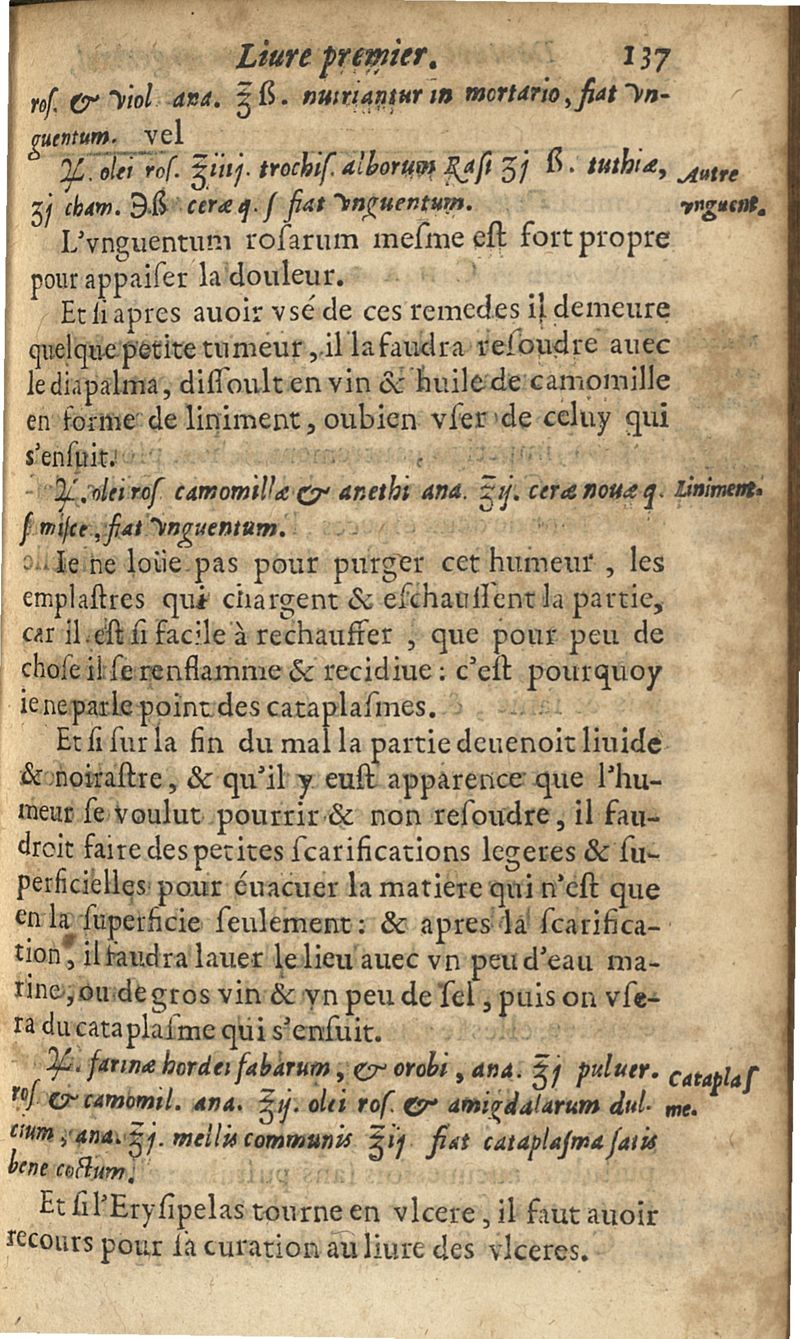 Liure premier. 137
roſ. & viol ana. ℥ ß. nutriantur in mortario, fiat vn-
guentum. vel
℞. olei roſ. ℥iiij. trochiſ. alborum Raſi ʒj ß. tuthiæ,
Autre
ʒj cham. ℈ß ceræ q. ſ fiat vnguentum.
vnguent.
L'vnguentum roſarum meſme eſt fort propre
pour appaiſer la douleur.
Et ſi apres auoir vsé de ces remedes il demeure
quelque petite tumeur, il la faudra reſoudre auec
le diapalma, diſſoult en vin & huile de camomille
en forme de liniment, oubien vſer de celuy qui
s'enſuit.
℞. olei roſ camomillæ & anethi ana. ℥ij. ceræ nouæ q.
Liniment.
ſ miſce, fiat vnguentum.
Ie ne loüe pas pour purger cet humeur, les
emplaſtres qui chargent & eſchauffent la partie,
car il eſt ſi facile à rechauffer, que pour peu de
choſe il ſe renflamme & recidiue: c'eſt pourquoy
ie ne parle point des cataplaſmes.
Et ſi ſur la fin du mal la partie deuenoit liuide
& noiraſtre, & qu'il y euſt apparence que l'hu-
meur ſe voulut pourrir & non reſoudre, il fau-
droit faire des petites ſcarifications legeres & ſu-
perficielles pour éuacuer la matiere qui n'eſt que
en la ſuperficie ſeulement: & apres la ſcarifica-
tion, il faudra lauer le lieu auec vn peu d'eau ma-
rine, ou de gros vin & vn peu de ſel, puis on vſe-
ra du cataplaſme qui s'enſuit.
℞. farinæ hordei fabarum, & orobi, ana. ℥j puluer.
Cataplaſ
roſ. & camomil. ana. ℥ij. olei roſ. & amigdalarum dul-
me.
cium, ana. ℥j. mellis communis ℥ij fiat cataplaſma ſatis
bene coctum.
Et ſi l'Eryſipelas tourne en vlcere, il faut auoir
recours pour ſa curation au liure des vlceres.